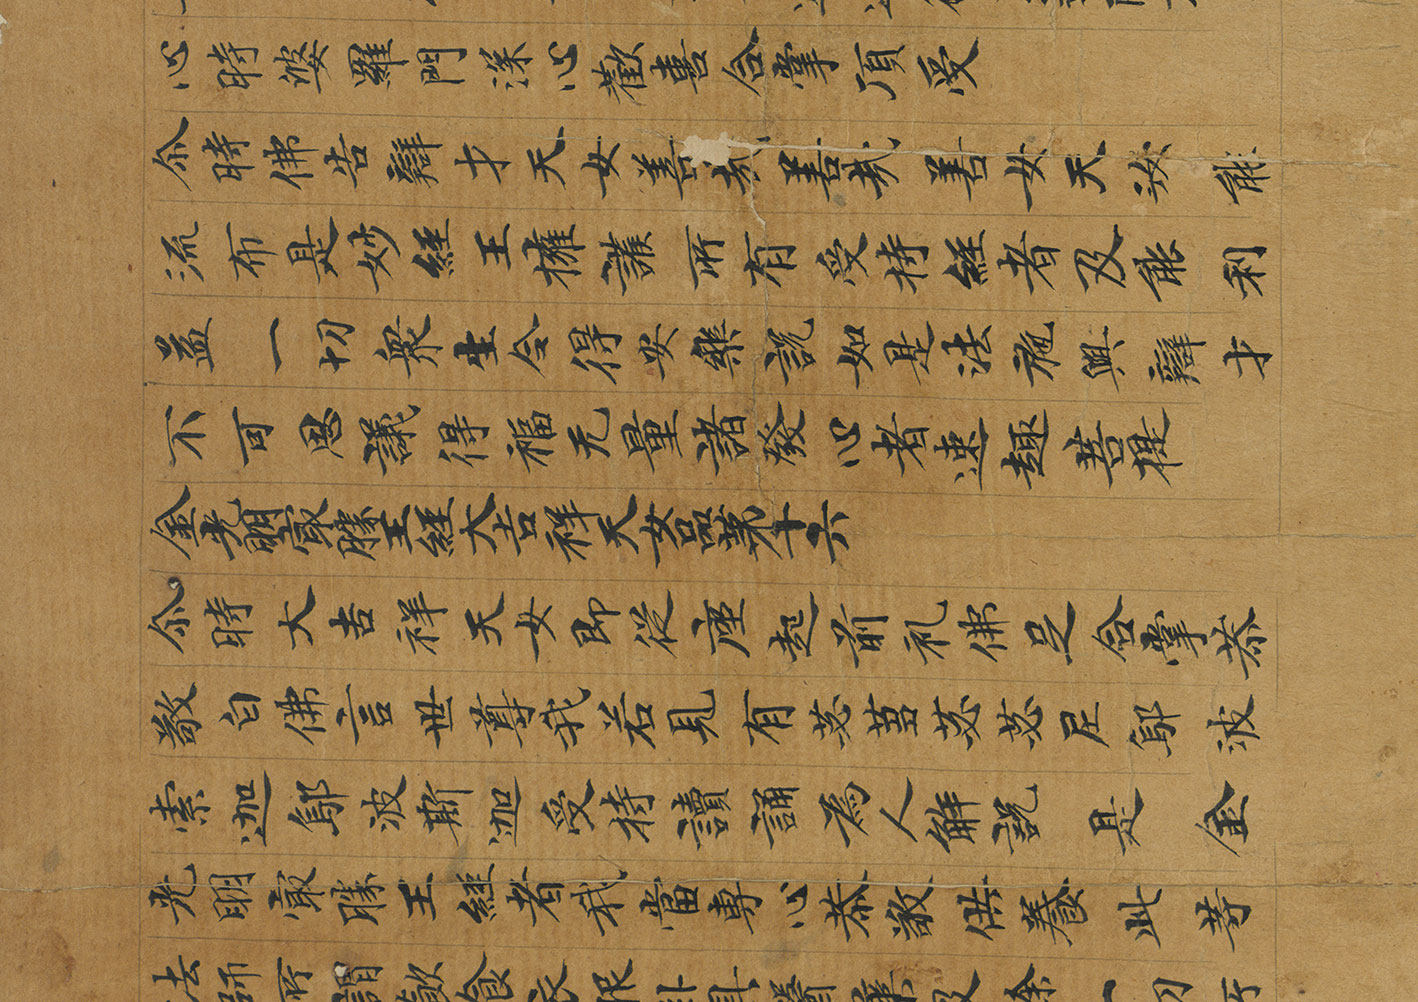 心時婆羅門深心歡喜合掌頂受
尒時佛告辯才天女善哉善哉善女天汝能
流布是妙經王擁護所有受持經者及能利
益一切衆生令得安樂說如是法施與辯才
不可思議得福无量諸發心者速趣菩提
金光明寂勝王經大吉祥天女品第十六
尒時大吉祥天女即從座起前礼佛足合掌恭
敬白佛言世尊我若見有苾芻苾芻尼鄔波
索迦鄔波斯迦受持讀誦為人解說是金
光明寂勝王經者我當專心恭敬供養此等
法師所謂飲食衣服卧具醫藥及餘一切所